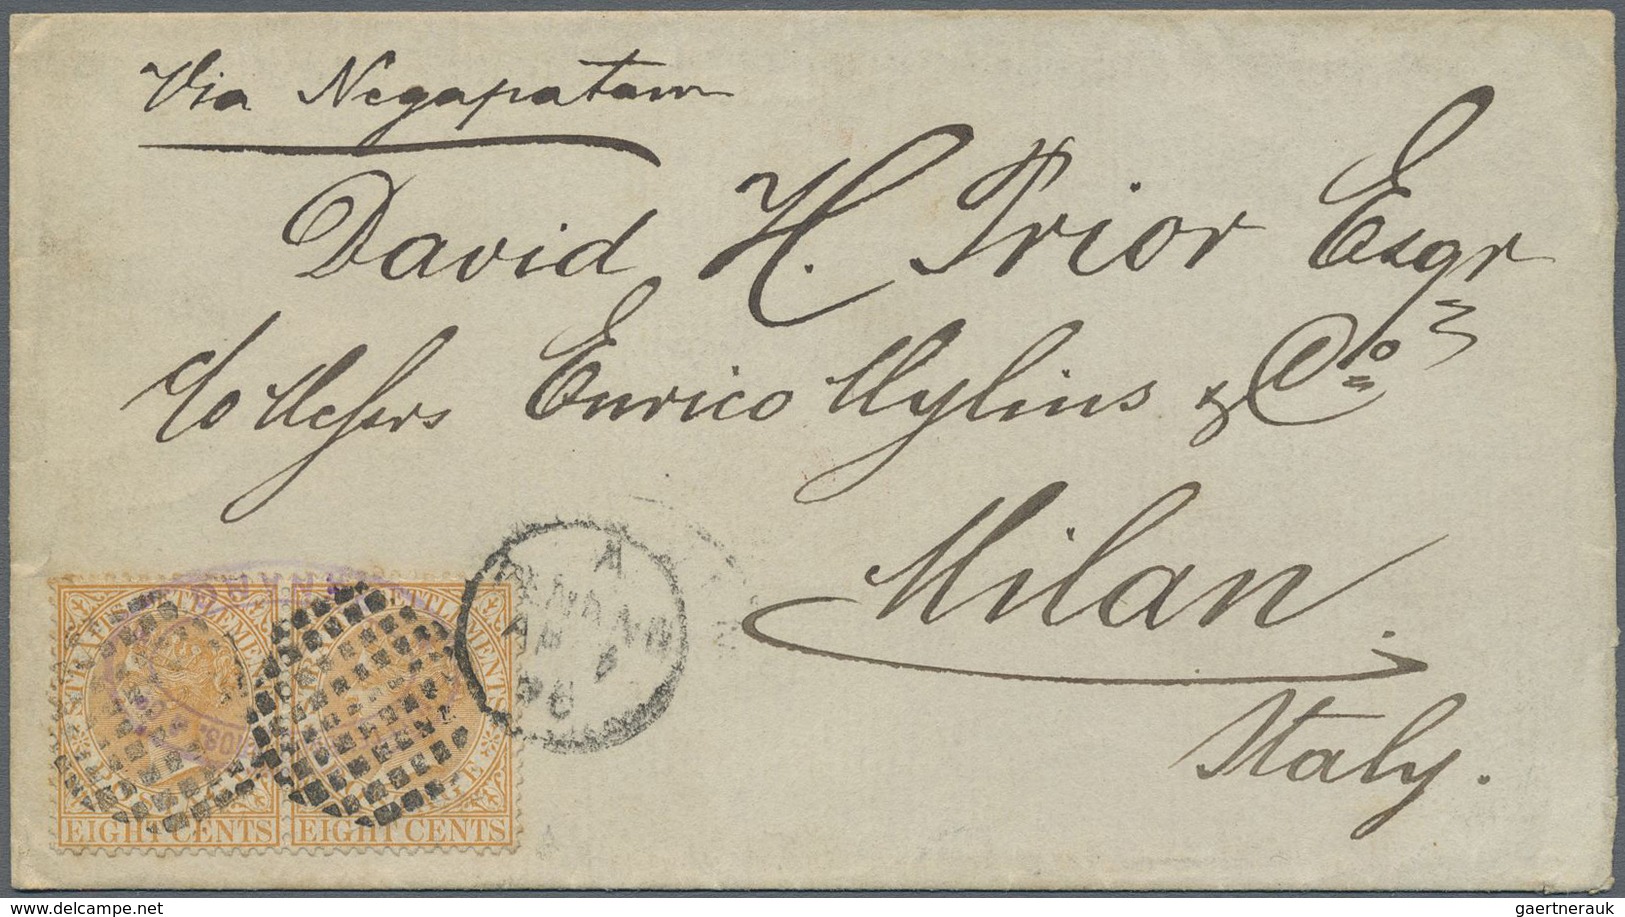 Via Negapatam
David H. Prior Esqr
c/o Messrs Enrico Mylius & Co
Milan
Italy.
PENANG
AP
STRAITS SETTLEMENTS
EIGHT CENTS
STRAITS SETTLEMENTS
EIGHT CENTS
delcampe.net
gaertnerauk